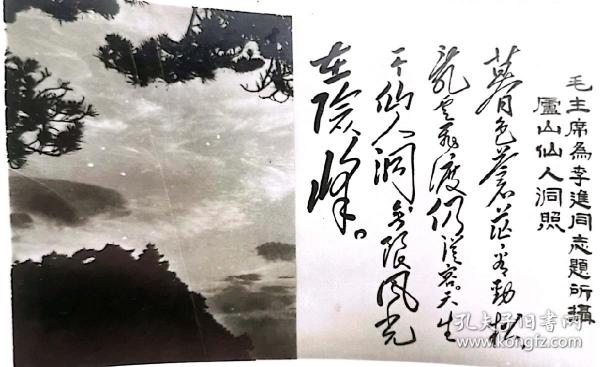 毛主席為李進同志題所攝
廬山仙人洞照
暮色蒼茫看勁松
亂雲飛渡仍從容。天生
一个仙人洞無限風光
在險峰。
孔夫子旧书网
www.kongfz.com